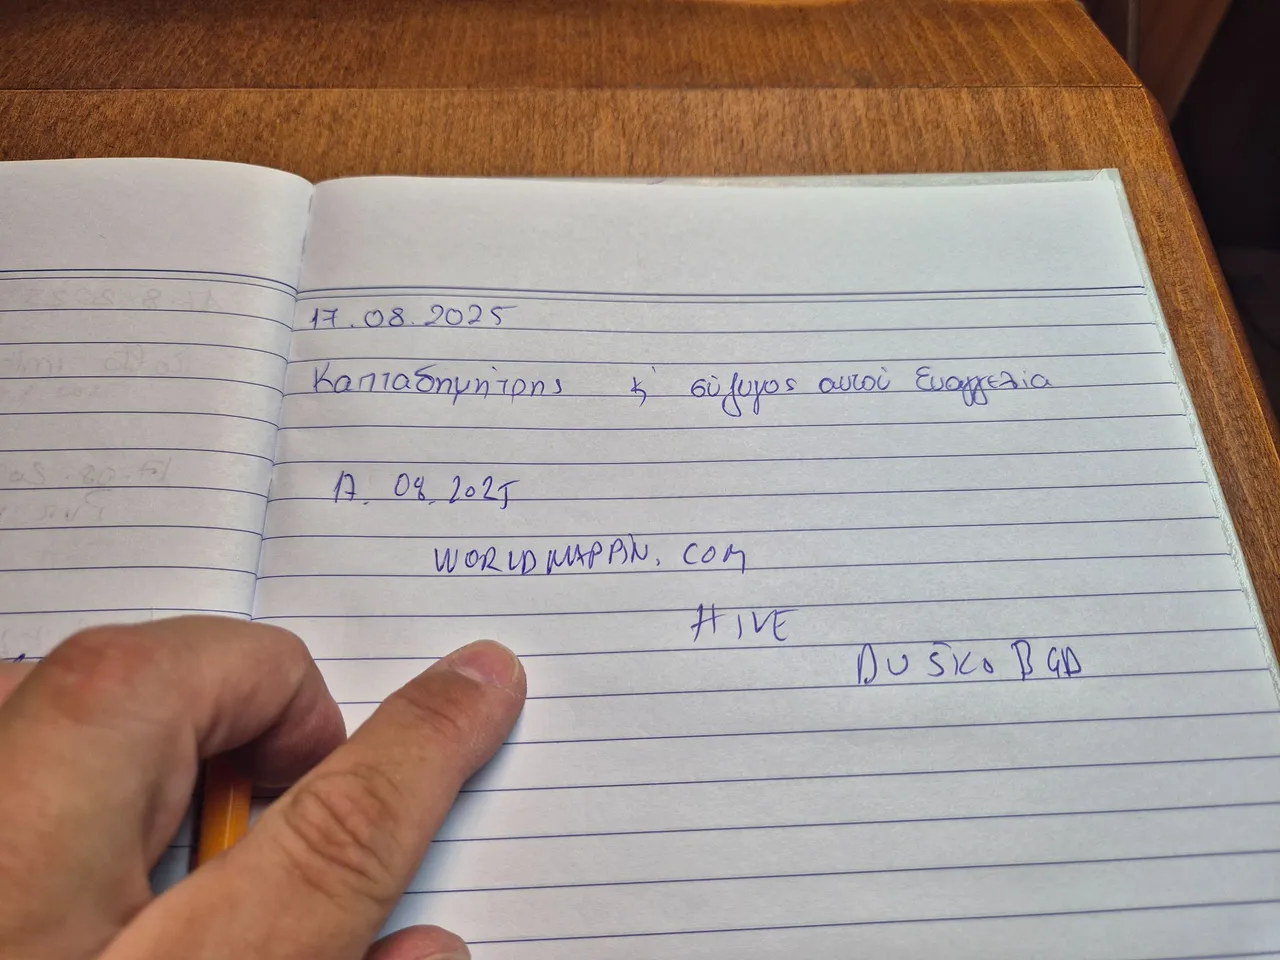 17.08.2025
Καπαδημήτρης κ' σύζυγος αυτού Ευαγγελία
17.08.2025
WORLDMAPPIN.COM
HIVE
DUŠKOBGD